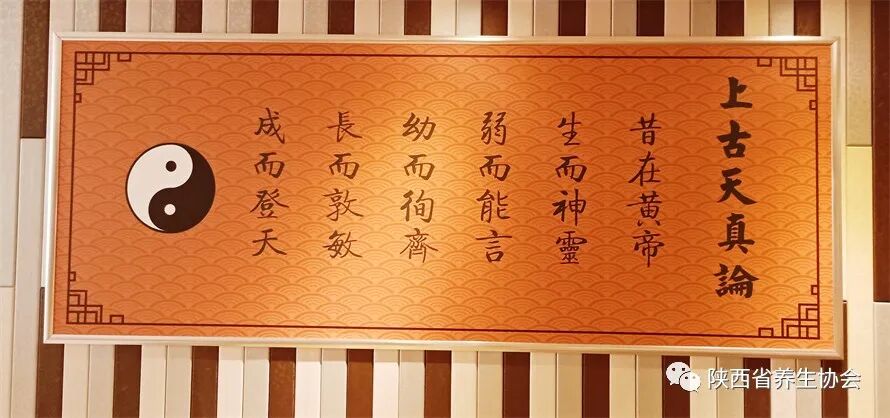 上古天真論
昔在黃帝
生而神靈
弱而能言
幼而徇齊
長而敦敏
成而登天
陕西省养生协会